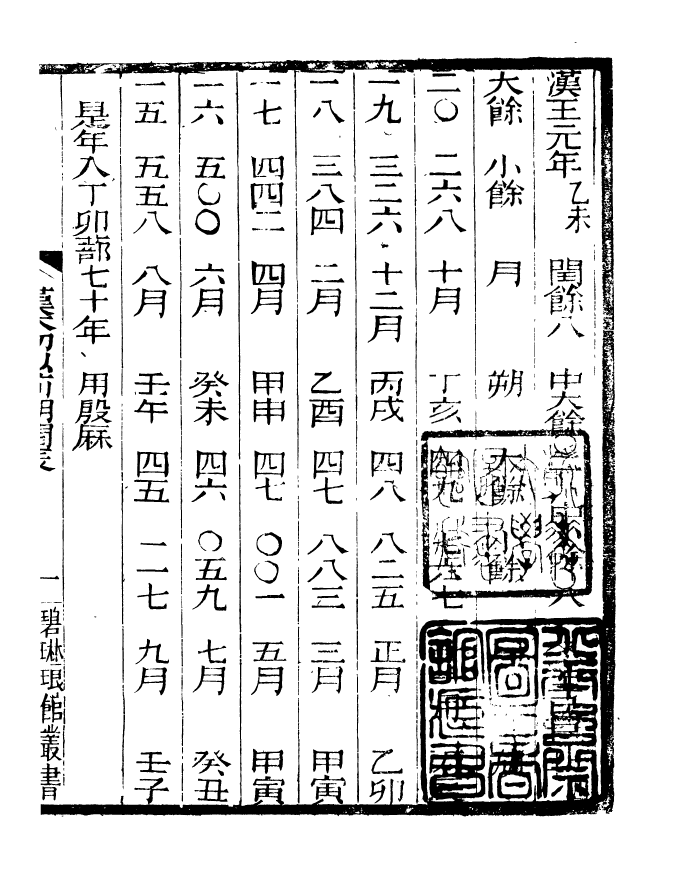 漢王元年乙未 閏餘八 中大餘 八
大餘 小餘 月 朔 大餘 小餘
二〇 二六八 十月 丁亥 四九 七六七
一九 三二六 十二月 丙戌 四八 八二五 正月 乙卯
一八 三八四 二月 乙酉 四七 八八三 三月 甲寅
一七 四四二 四月 甲申 四七 〇〇一 五月 甲寅
一六 五〇〇 六月 癸未 四六 〇五九 七月 癸丑
一五 五五八 八月 壬午 四五 一一七 九月 壬子
是年入丁卯蔀七十年、用殷厤
漢初以前朔閏表 一 碧琳琅館叢書